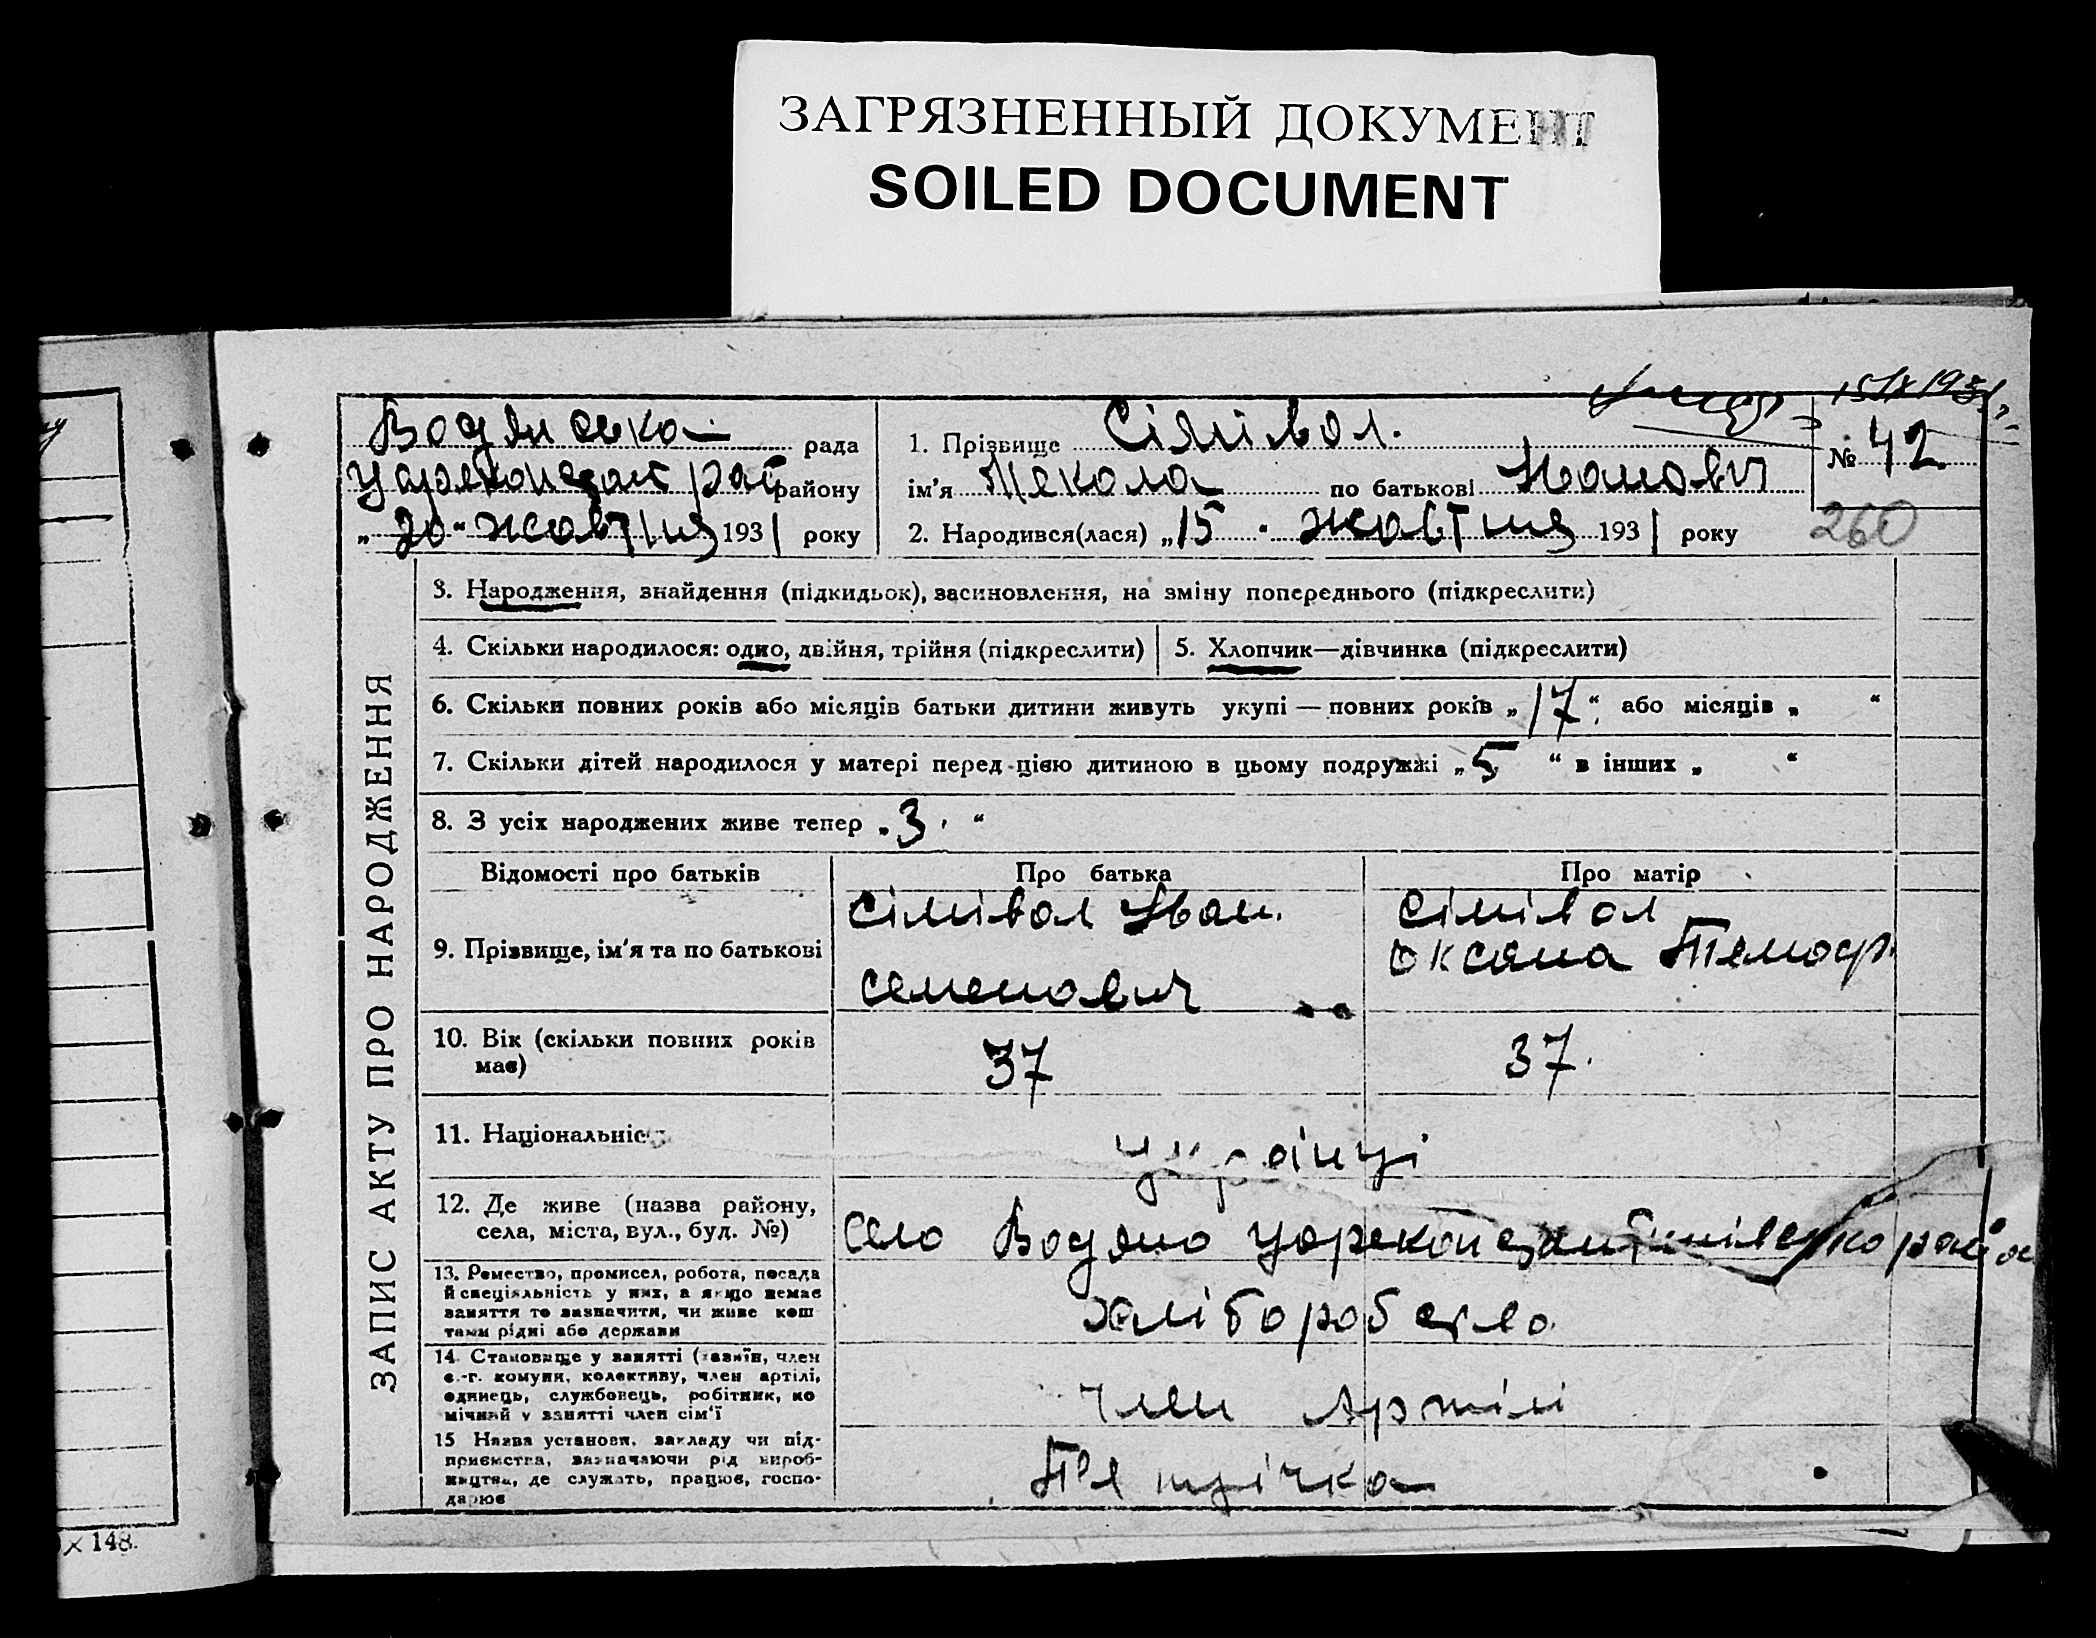 ЗАГРЯЗНЕННЫЙ ДОКУМЕНТ
SOILED DOCUMENT
15/IX 1931
Водянська рада
району
„20“ жовтня 1931 року
1. Прізвище Сілівол.
№ 42
ім'я Мекола по батькові Иванович
2. Народився(лася) „15 “ жовтня 1931 року
260
ЗАПИС АКТУ ПРО НАРОДЖЕННЯ
3. Народження, знайдення (підкидьок), засиновлення, на зміну попереднього (підкреслити)
4. Скільки народилося: одно, двійня, трійня (підкреслити)
5. Хлопчик—дівчинка (підкреслити)
6. Скільки повних років або місяців батьки дитини живуть укупі — повних років „17“, або місяців „ “
7. Скільки дітей народилося у матері перед цією дитиною в цьому подружжі „5 “ в інших „ “
8. З усіх народжених живе тепер „3. “
Відомості про батьків
Про батька
Про матір
9. Прізвище, ім'я та по батькові
Сілівол Иван.
Семенович
Сілівол
Оксана Темоф.
10. Вік (скільки повних років
має)
37
37.
11. Національніс
українці
12. Де живе (назва району,
села, міста, вул., буд. №)
село Водяно
13. Ремество, промисел, робота, посада
й спеціяльність у них, а якщо немає
заняття то зазначити, чи живе кош
тами рідні або держави
хліборобство.
14. Становище у занятті (хазяїн, член
с.-г. комуни, колективу, член артілі,
одинець, службовець, робітник, по
мічний у занятті член сім'ї
член Артілі
15 Назва установи, закладу чи під-
приємства, зазначаючи рід вироб-
ництва, де служать, працює, госпо-
дарює
П'ятрічка
× 148.